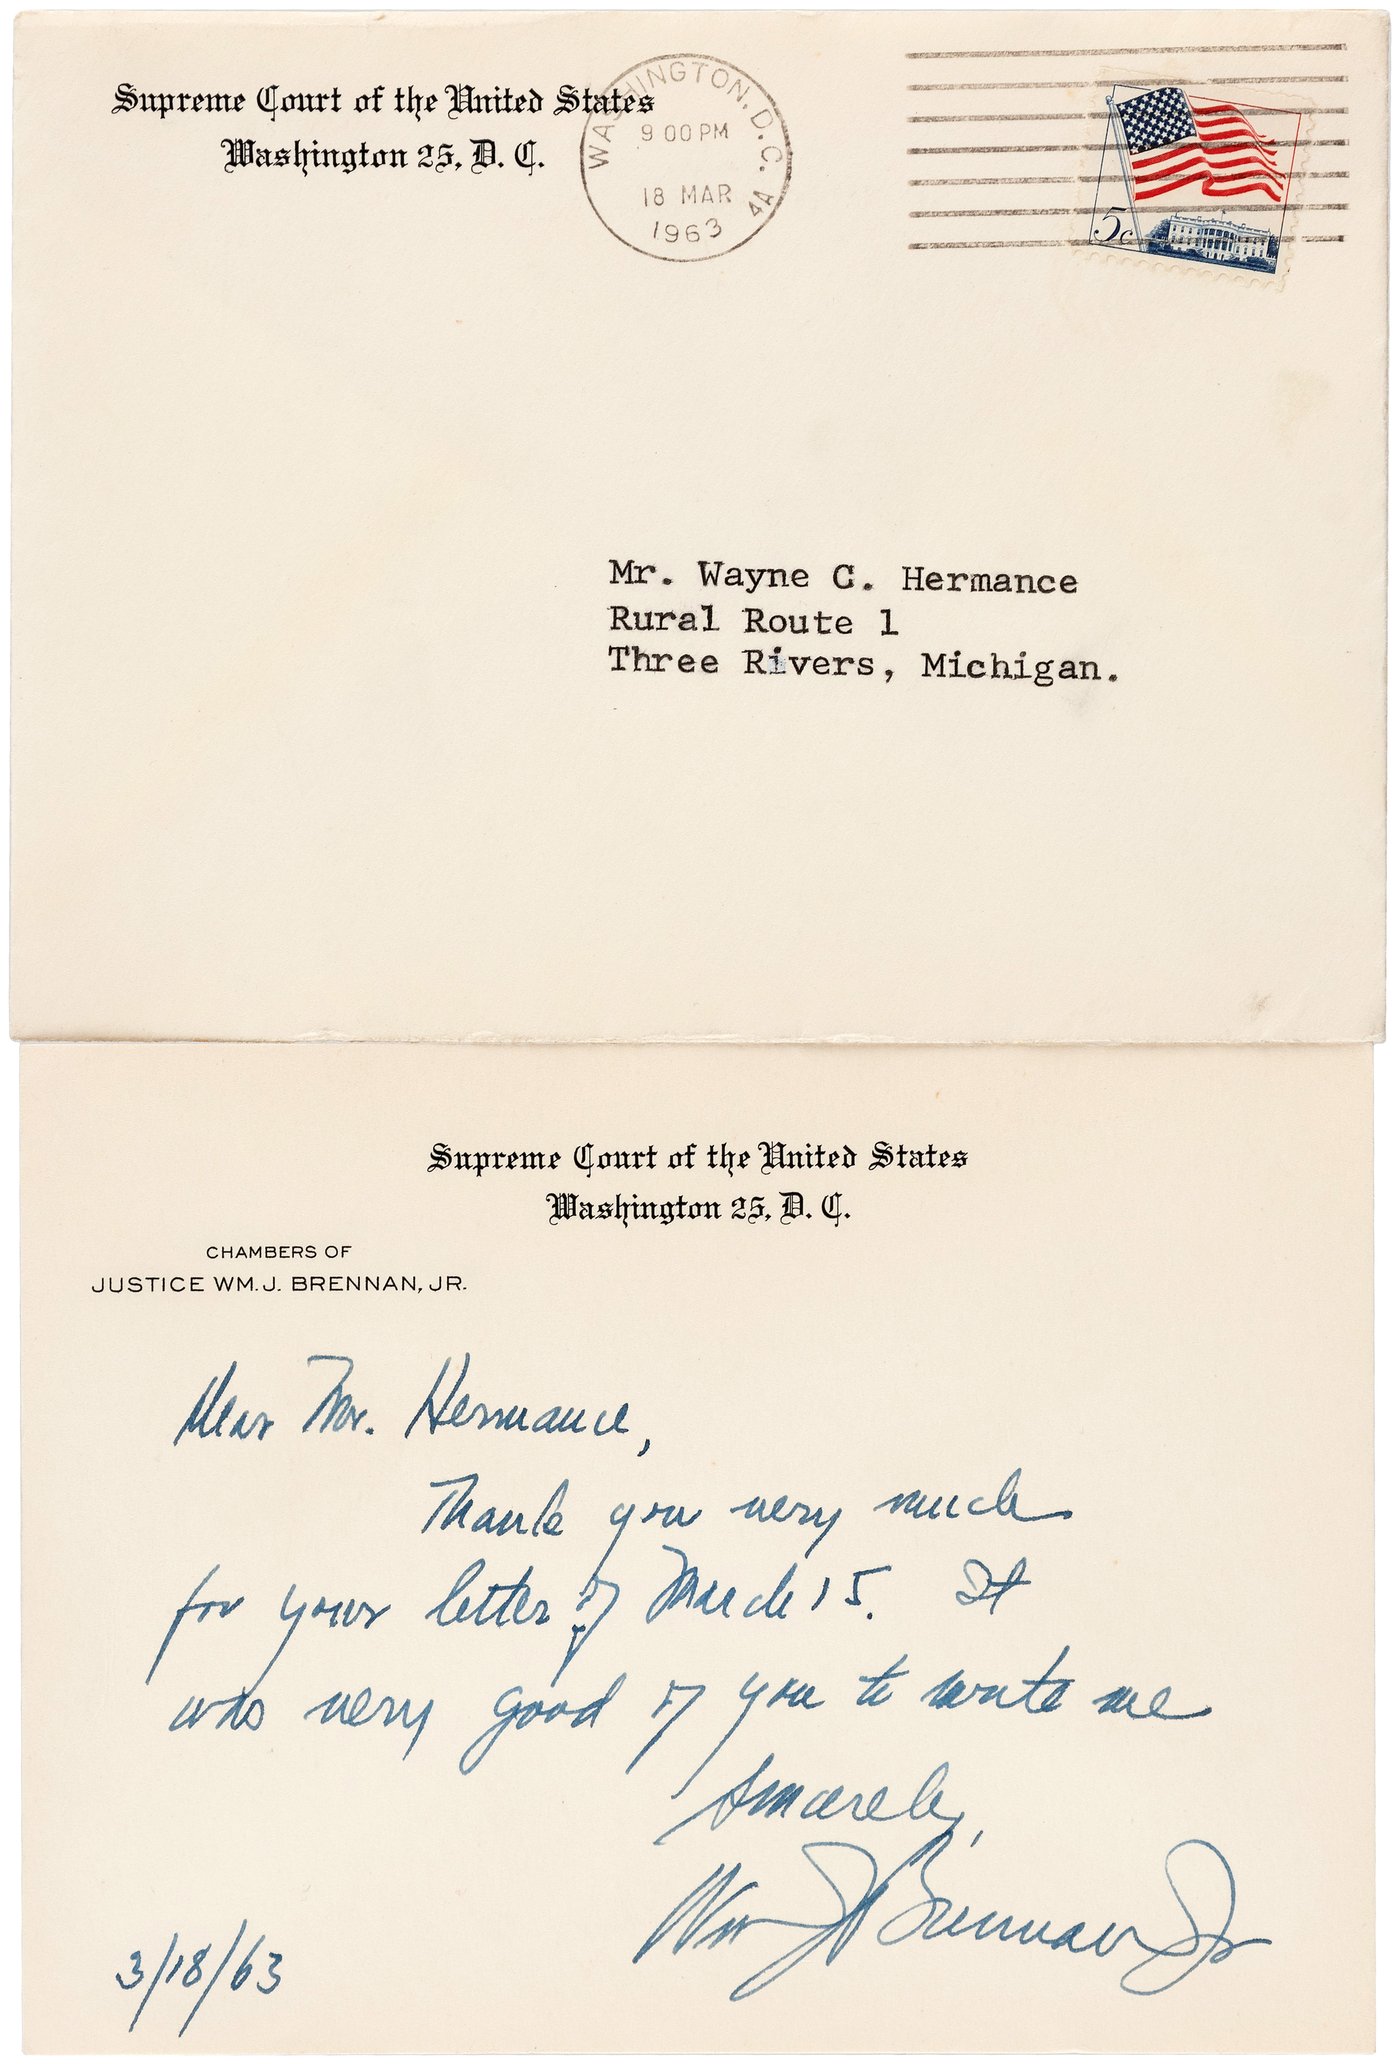 Supreme Court of the United States
Washington 25, D. C.
WASHINGTON, D.C. 4A
9 00 PM
18 MAR
1963
5c
Mr. Wayne C. Hermance
Rural Route 1
Three Rivers, Michigan.
Supreme Court of the United States
Washington 25, D. C.
CHAMBERS OF
JUSTICE WM. J. BRENNAN, JR.
Dear Mr. Hermance,
Thank you very much
for your letter of March 15. It
was very good of you to write me
Sincerely,
Wm J Brennan Jr
3/18/63